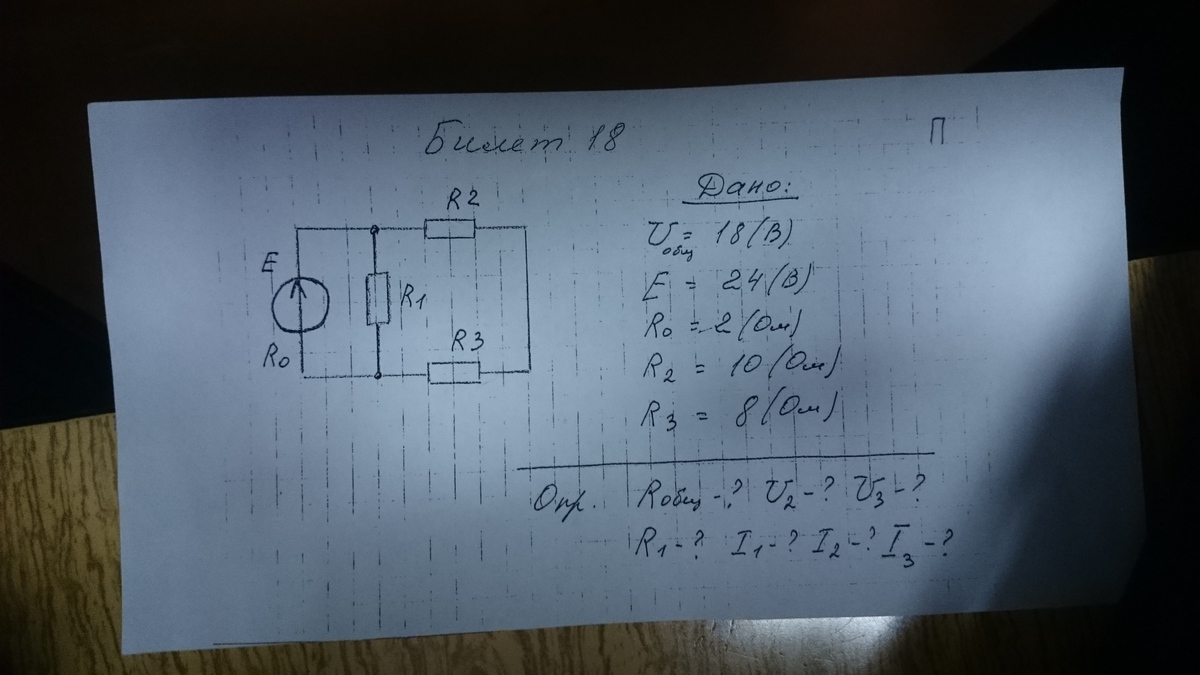 Билет 18
П
R2
E
R1
R0
R3
Дано:
Uобщ = 18 (В)
E = 24 (В)
R0 = 2 (Ом)
R2 = 10 (Ом)
R3 = 8 (Ом)
Опр. Rобщ - ? U2 - ? U3 - ?
R1 - ? I1 - ? I2 - ? I3 - ?